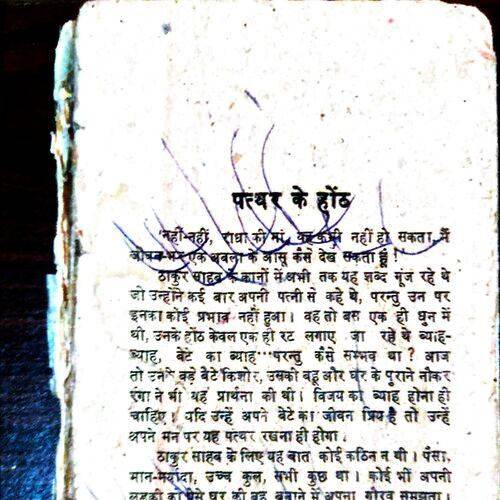 पत्थर के होंठ
'नहीं-नहीं, राधा की मां, यह कभी नहीं हो सकता, मैं
जीवन भर एक अबला के आंसू कैसे देख सकता हूं !'
ठाकुर साहब के कानों में अभी तक यह शब्द गूंज रहे थे
जो उन्होंने कई बार अपनी पत्नी से कहे थे, परन्तु उन पर
इनका कोई प्रभाव नहीं हुआ। वह तो बस एक ही धुन में
थी, उनके होंठ केवल एक ही रट लगाए जा रहे थे ब्याह-
ब्याह, बेटे का ब्याह···परन्तु कैसे सम्भव था ? आज
तो उनके बड़े बेटे किशोर, उसकी बहू और घर के पुराने नौकर
रंगा ने भी यह प्रार्थना की थी। विजय का ब्याह होना ही
चाहिए। यदि उन्हें अपने बेटे का जीवन प्रिय है तो उन्हें
अपने मन पर यह पत्थर रखना ही होगा।
ठाकुर साहब के लिए यह बात कोई कठिन न थी। पैसा,
मान-मर्यादा, उच्च कुल, सभी कुछ था। कोई भी अपनी
लड़की को ऐसे घर की बहू बनाने में अपना गौरव समझता।